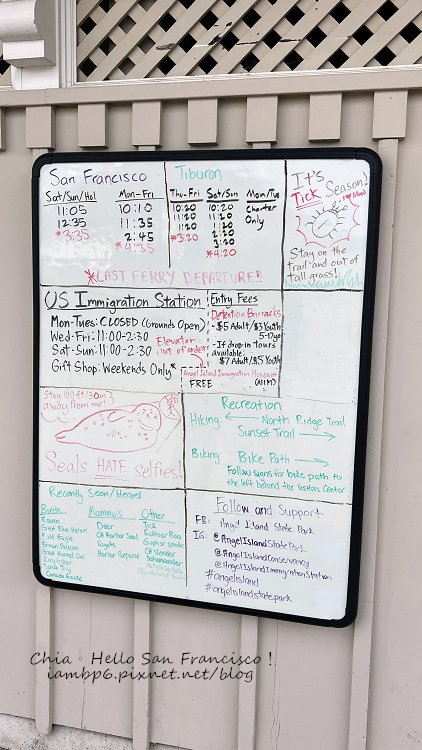 San Francisco
Sat/Sun/Hol
11:05
12:35
*3:35
Mon-Fri
10:10
11:35
2:45
*4:35
Tiburon
Thu-Fri
10:20
11:20
1:20
*3:20
Sat/Sun
10:20
11:20
1:20
2:20
3:20
*4:20
Mon/Tue
Charter
Only
*LAST FERRY DEPARTURE!!
It's
Tick Season!
Stay on the
trail and out of
tall grass!
US Immigration Station
Mon-Tues: CLOSED (Grounds Open)
Wed-Fri: 11:00-2:30
Sat-Sun: 11:00-2:30
Gift Shop: Weekends Only*
Elevator
out of order
Entry Fees
Detention Barracks
-$5 Adult/$3 Youth
5-17yo
-If drop-in tours
available:
$7 Adult/$5 Youth
Angel Island Immigration Museum
FREE (AIIM)
Stay 100ft/30m
away from me!
Seals HATE selfies!
Recreation
Hiking: North Ridge Trail
Sunset Trail
Biking: Bike Path
Follow signs for bike path to
the left behind the Visitors Center
Recently Seen/Heard
Birds
Raven
Great Blue Heron
Bald Eagle
Brown Pelican
Great Horned Owl
Kingfisher
Canada Goose
Mammals
Deer
CA Harbor Seal
Coyote
Harbor Porpoise
Other
Tick
Rubber Boa
Gopher snake
CA slender
Salamander
Follow and Support
FB: Angel Island State Park
IG: @AngelIslandStatePark
@AngelIslandConservancy
@AngelIslandImmigrationStation
#angelisland
#angelislandstatepark
Chia。Hello San Francisco!
iambp6.pixnet.net/blog